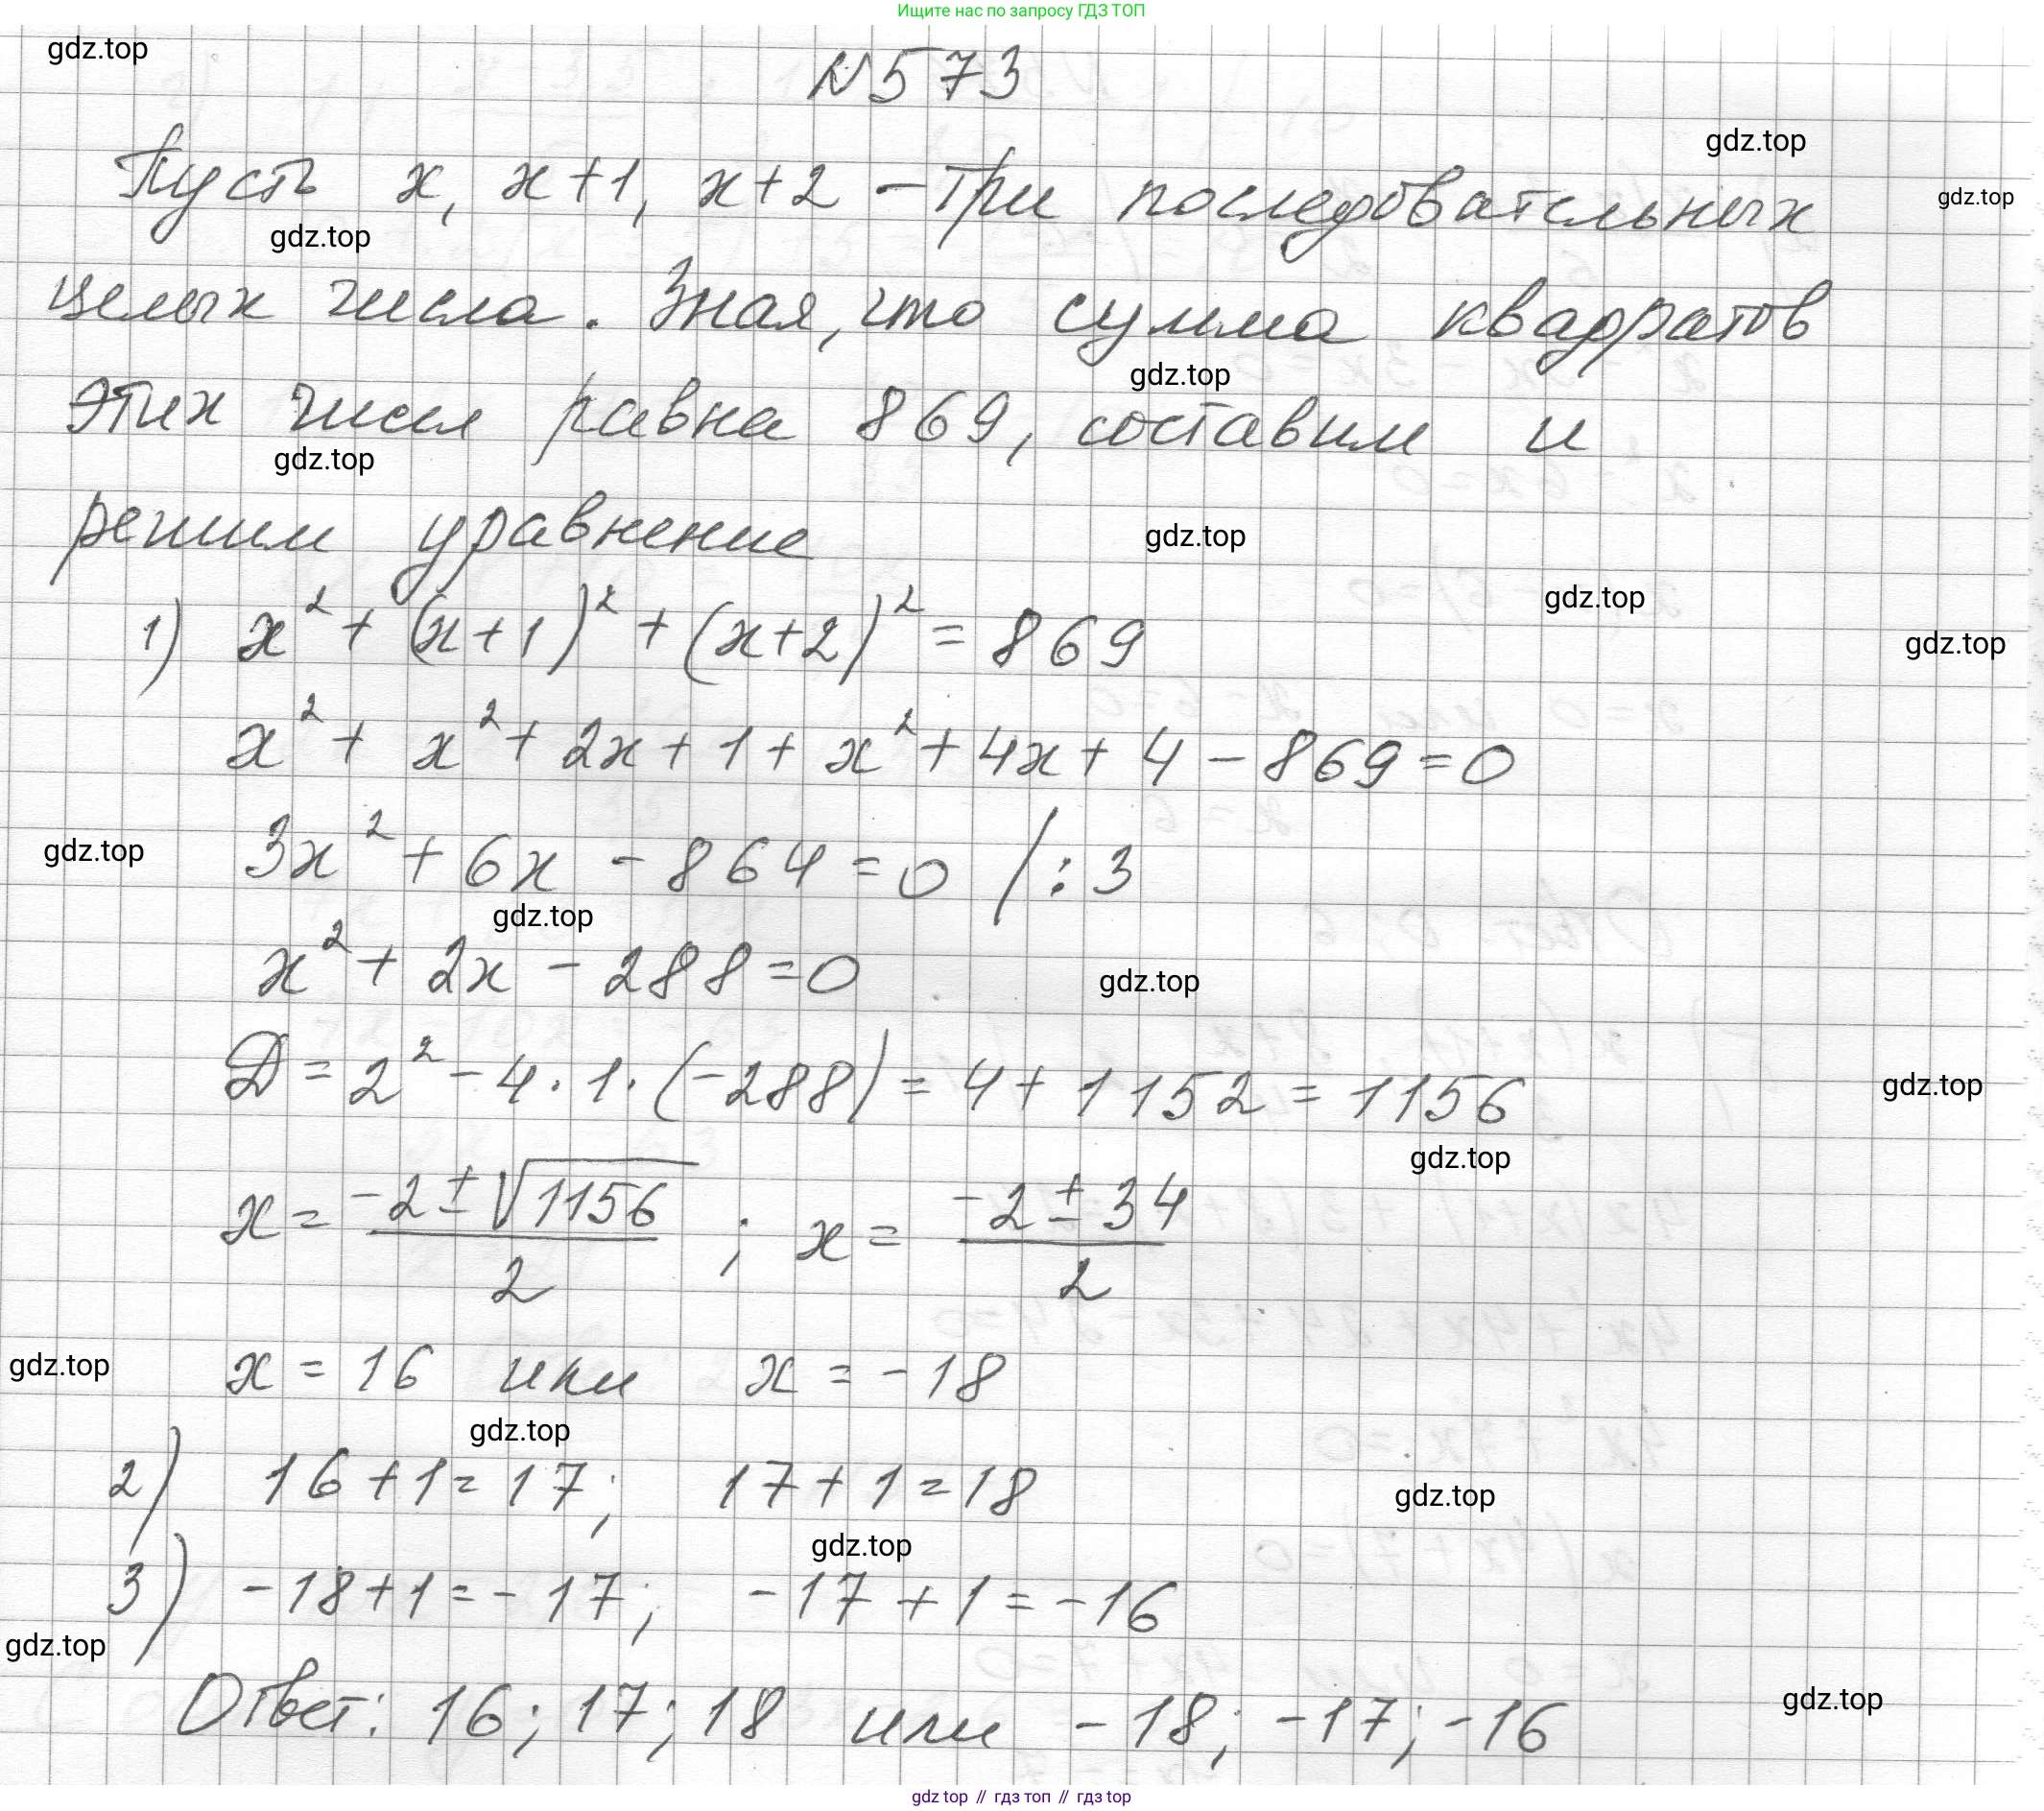 Ищите нас по запросу ГДЗ ТОП
gdz.top
N573
gdz.top
Пусть x, x+1, x+2 – три последовательных
gdz.top
gdz.top
целых числа. Зная, что сумма квадратов
gdz.top
этих чисел равна 869, составим и
gdz.top
решим уравнение
gdz.top
gdz.top
1) x² + (x+1)² + (x+2)² = 869
gdz.top
x² + x² + 2x + 1 + x² + 4x + 4 – 869 = 0
gdz.top
3x² + 6x – 864 = 0 / : 3
gdz.top
x² + 2x – 288 = 0
gdz.top
D = 2² – 4 · 1 · (–288) = 4 + 1152 = 1156
gdz.top
gdz.top
x = (–2 ± √1156)/2 ; x = (–2 ± 34)/2
gdz.top
x = 16 или x = –18
gdz.top
2) 16 + 1 = 17; 17 + 1 = 18
gdz.top
gdz.top
3) –18 + 1 = –17; –17 + 1 = –16
gdz.top
Ответ: 16; 17; 18 или –18; –17; –16
gdz.top
gdz top // гдз топ // гдз top